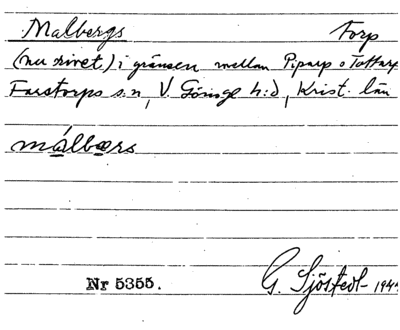 Malbergs Torp
(nu rivet) i gränsen mellan Piparp o Tottarp
Farstorps s:n, V. Göinge h:d, Krist. län
målbærs
Nr 5355.
G. Sjöstedt